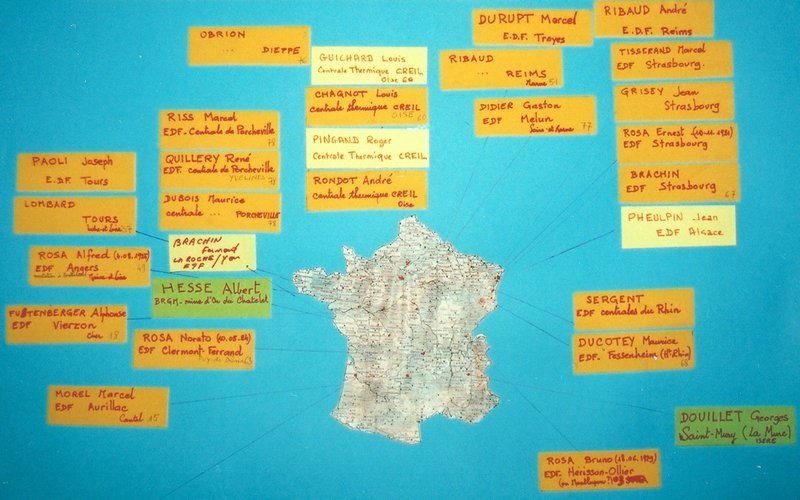 OBRION
... DIEPPE
76
GUICHARD Louis
Centrale Thermique CREIL
Oise 60
CHAGNOT Louis
centrale thermique CREIL
OISE 60
PINGAND Roger
Centrale Thermique CREIL
RONDOT André
centrale thermique CREIL
Oise
RIBAUD
... REIMS
Marne 51
DURUPT Marcel
E.D.F. Troyes
RIBAUD André
E.D.F. Reims
TISSERAND Marcel
EDF Strasbourg.
GRISEY Jean
Strasbourg
ROSA Ernest (20.11.1921)
EDF Strasbourg
BRACHIN
EDF Strasbourg
67
PHEULPIN Jean
EDF Alsace
DIDIER Gaston
EDF Melun
Seine et Marne 77
RISS Marcel
EDF-Centrale de Porcheville
78
QUILLERY René
EDF. centrale de Porcheville
YVELINES 78
DUBOIS Maurice
centrale ... PORCHEVILLE
78
PAOLI Joseph
E.D.F Tours
LOMBARD
TOURS
Indre et Loire 37
BRACHIN
Fernand
LA ROCHE/Yon
EDF
ROSA Alfred
EDF Angers
Maine et Loire
49
HESSE Albert
BRGM-mine d'Or du Chatelet
FUSTENBERGER Alphonse
EDF Vierzon
Cher 18
ROSA Norato (20.08.24)
EDF Clermont-Ferrand
Puy de Dôme 63
MOREL Marcel
EDF Aurillac
Cantal 15
SERGENT
EDF centrales du Rhin
DUCOTEY Maurice
EDF. Fessenheim (Ht Rhin)
68
DOUILLET Georges
Saint-Mury (La Mure)
ISERE
ROSA Bruno (18.06.1929)
EDF Hérisson-Ollier
(ou Montluçon?)